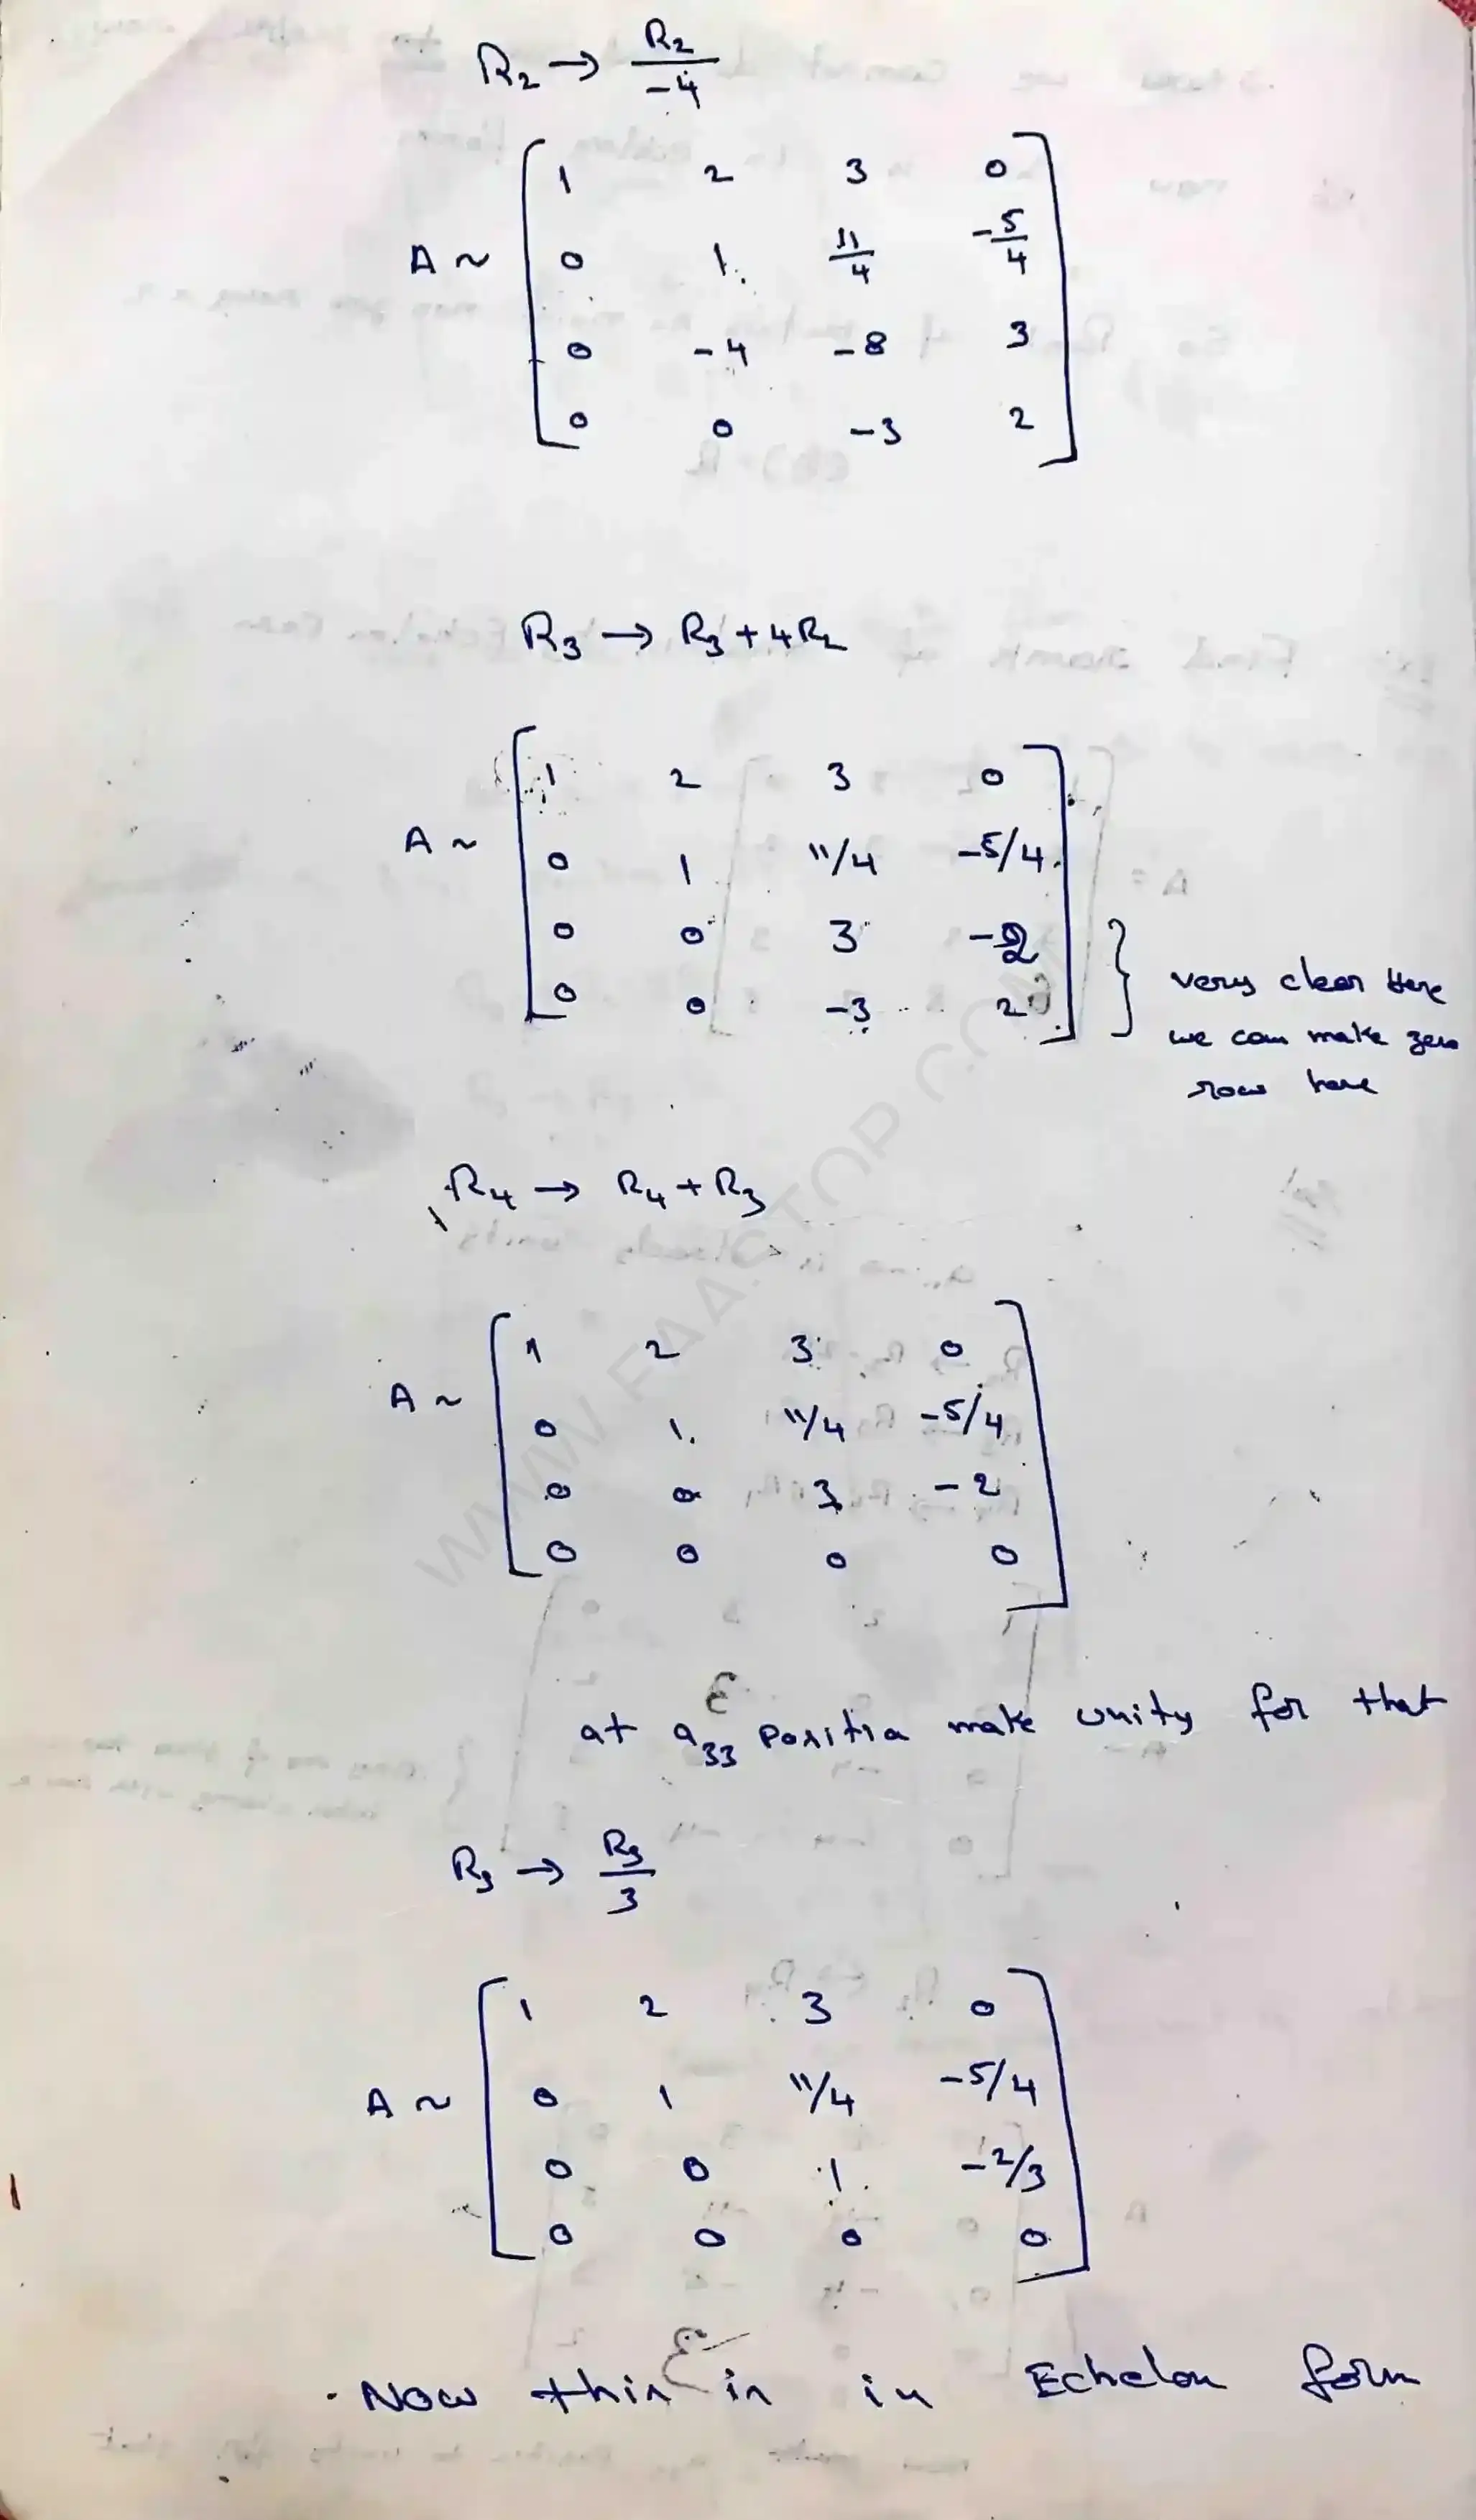 R₂ → R₂/-4
A ~ [ 1 2 3 0
0 1 11/4 -5/4
0 -4 -8 3
0 0 -3 2 ]
R₃ → R₃ + 4R₂
A ~ [ 1 2 3 0
0 1 11/4 -5/4
0 0 3 -2
0 0 -3 2 ]
} very clear here
we can make zero
row here
R₄ → R₄ + R₃
A ~ [ 1 2 3 0
0 1 11/4 -5/4
0 0 3 -2
0 0 0 0 ]
at a₃₃ position make unity for that
R₃ → R₃/3
A ~ [ 1 2 3 0
0 1 11/4 -5/4
0 0 1 -2/3
0 0 0 0 ]
Now this is in Echelon form
WWW.FAASTOP.COM